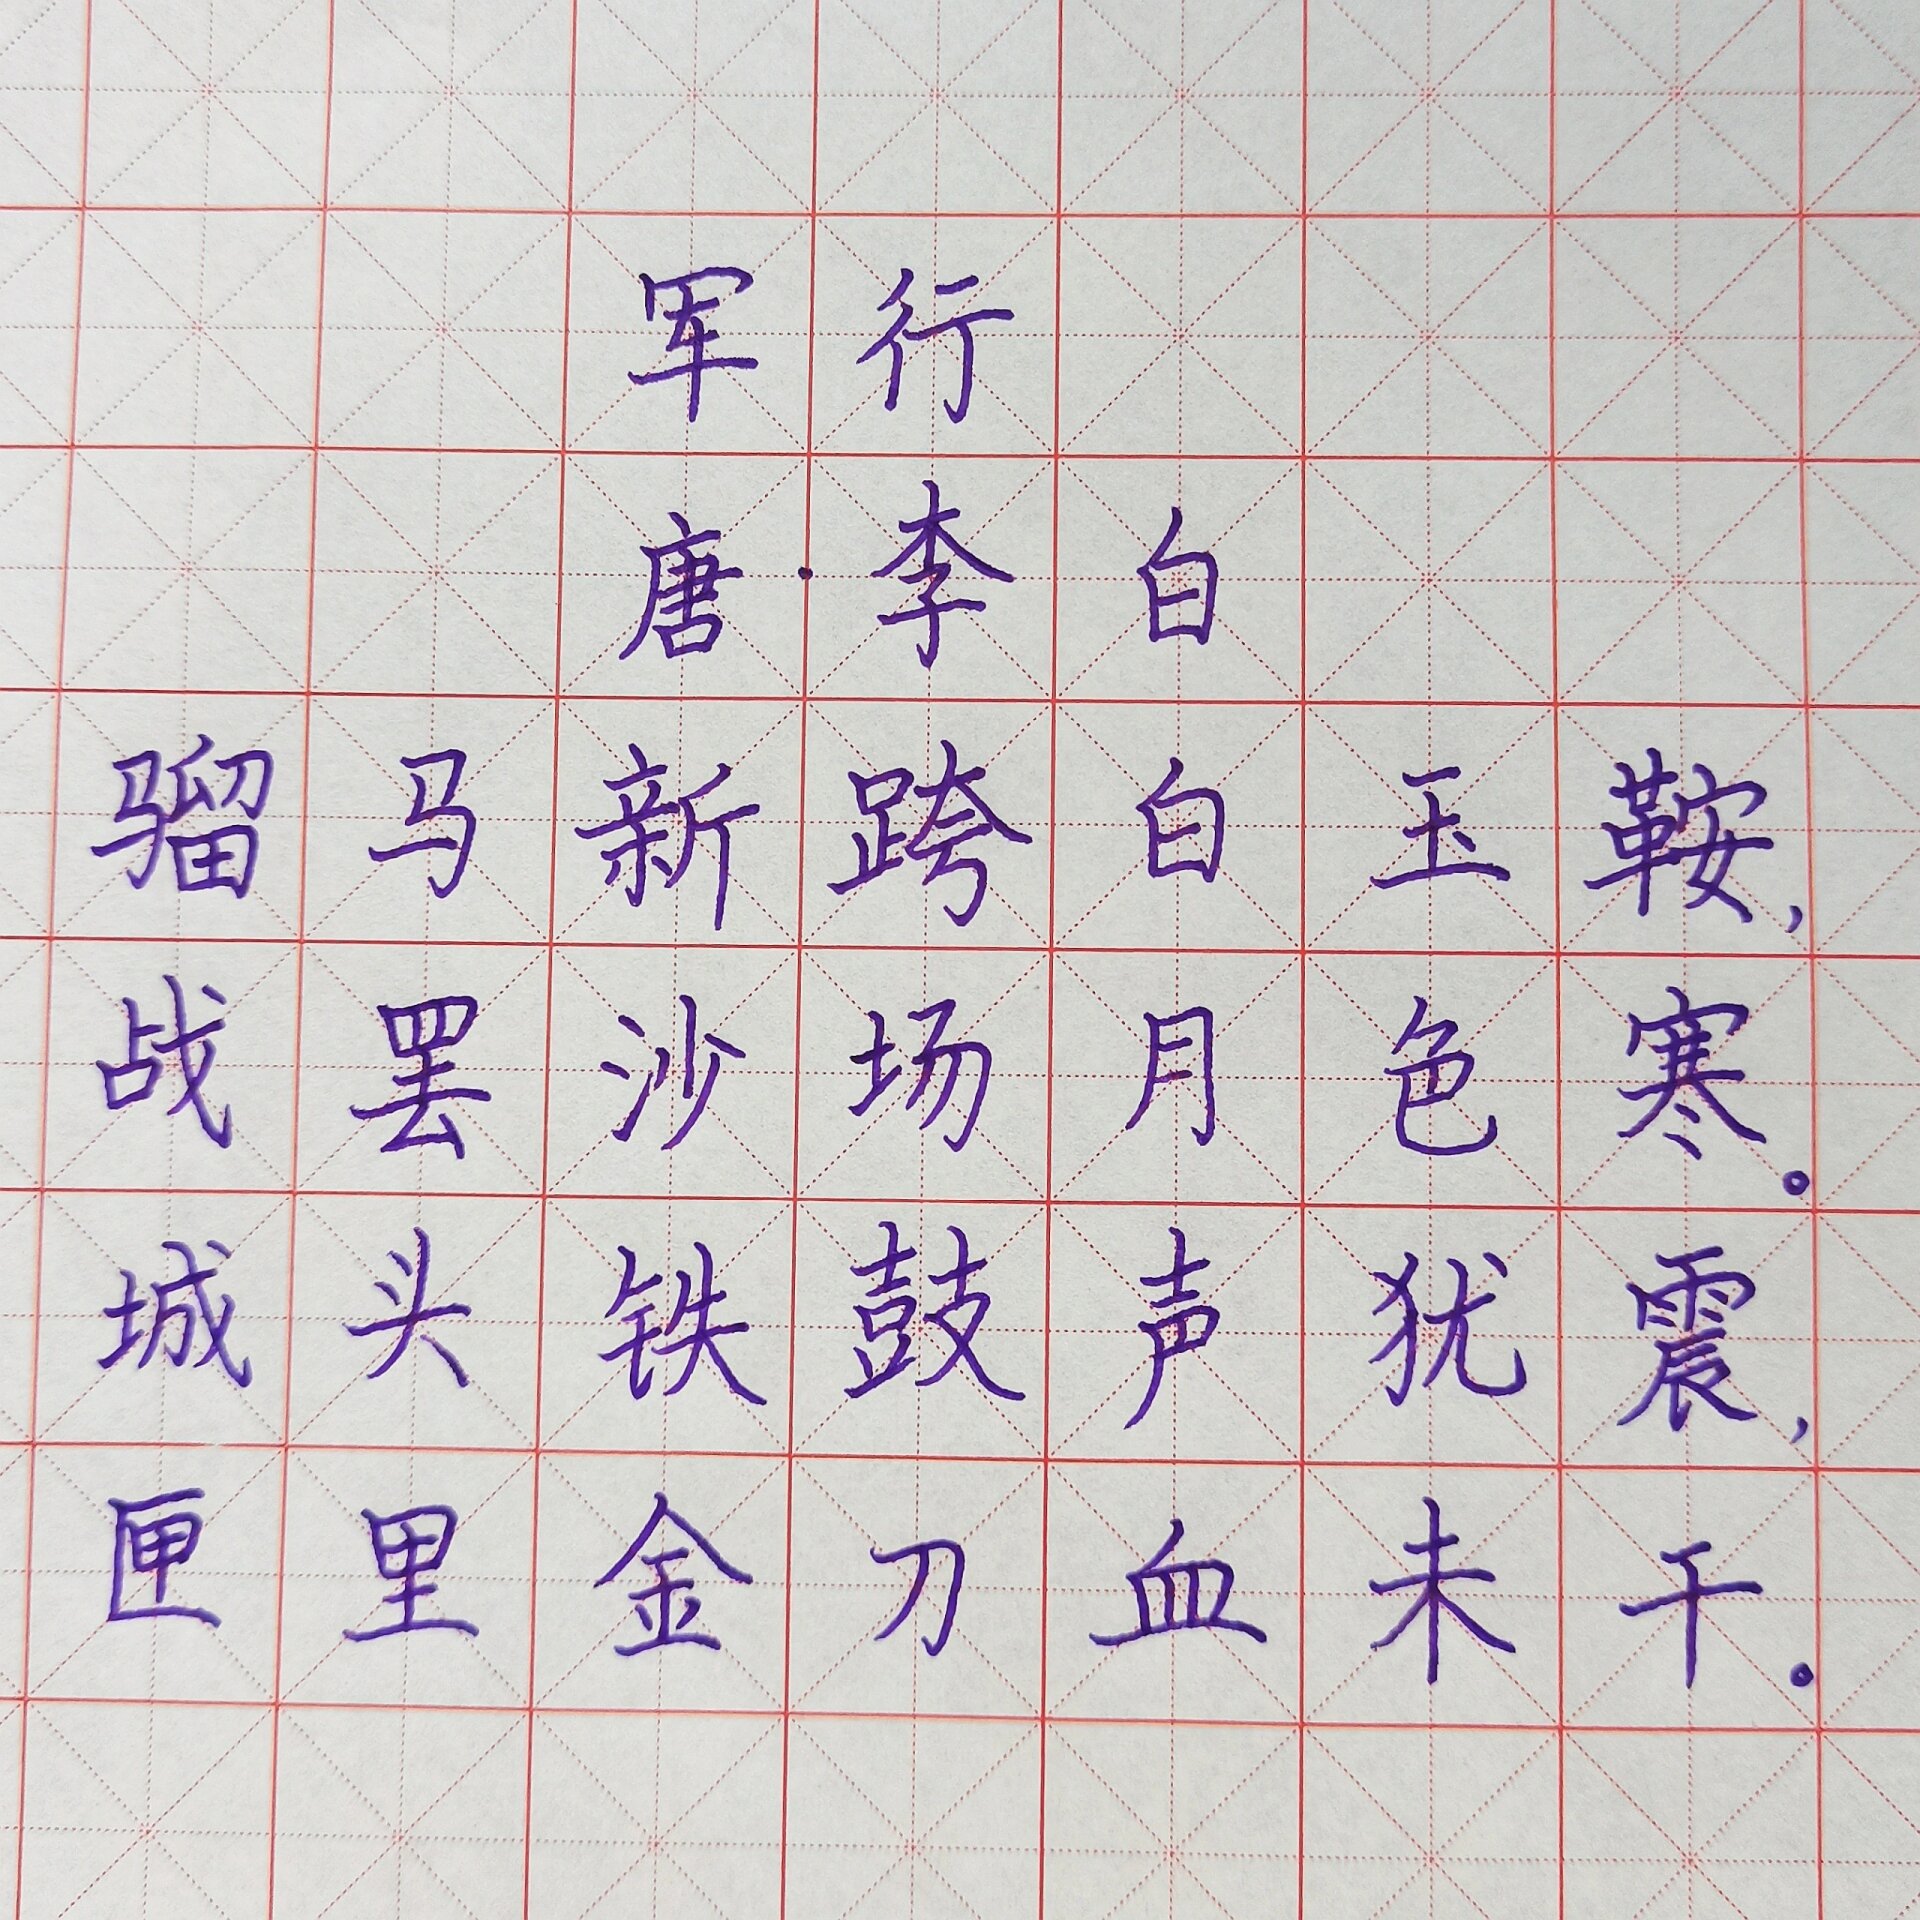 军行
唐·李白
骝马新跨白玉鞍,
战罢沙场月色寒。
城头铁鼓声犹震,
匣里金刀血未干。